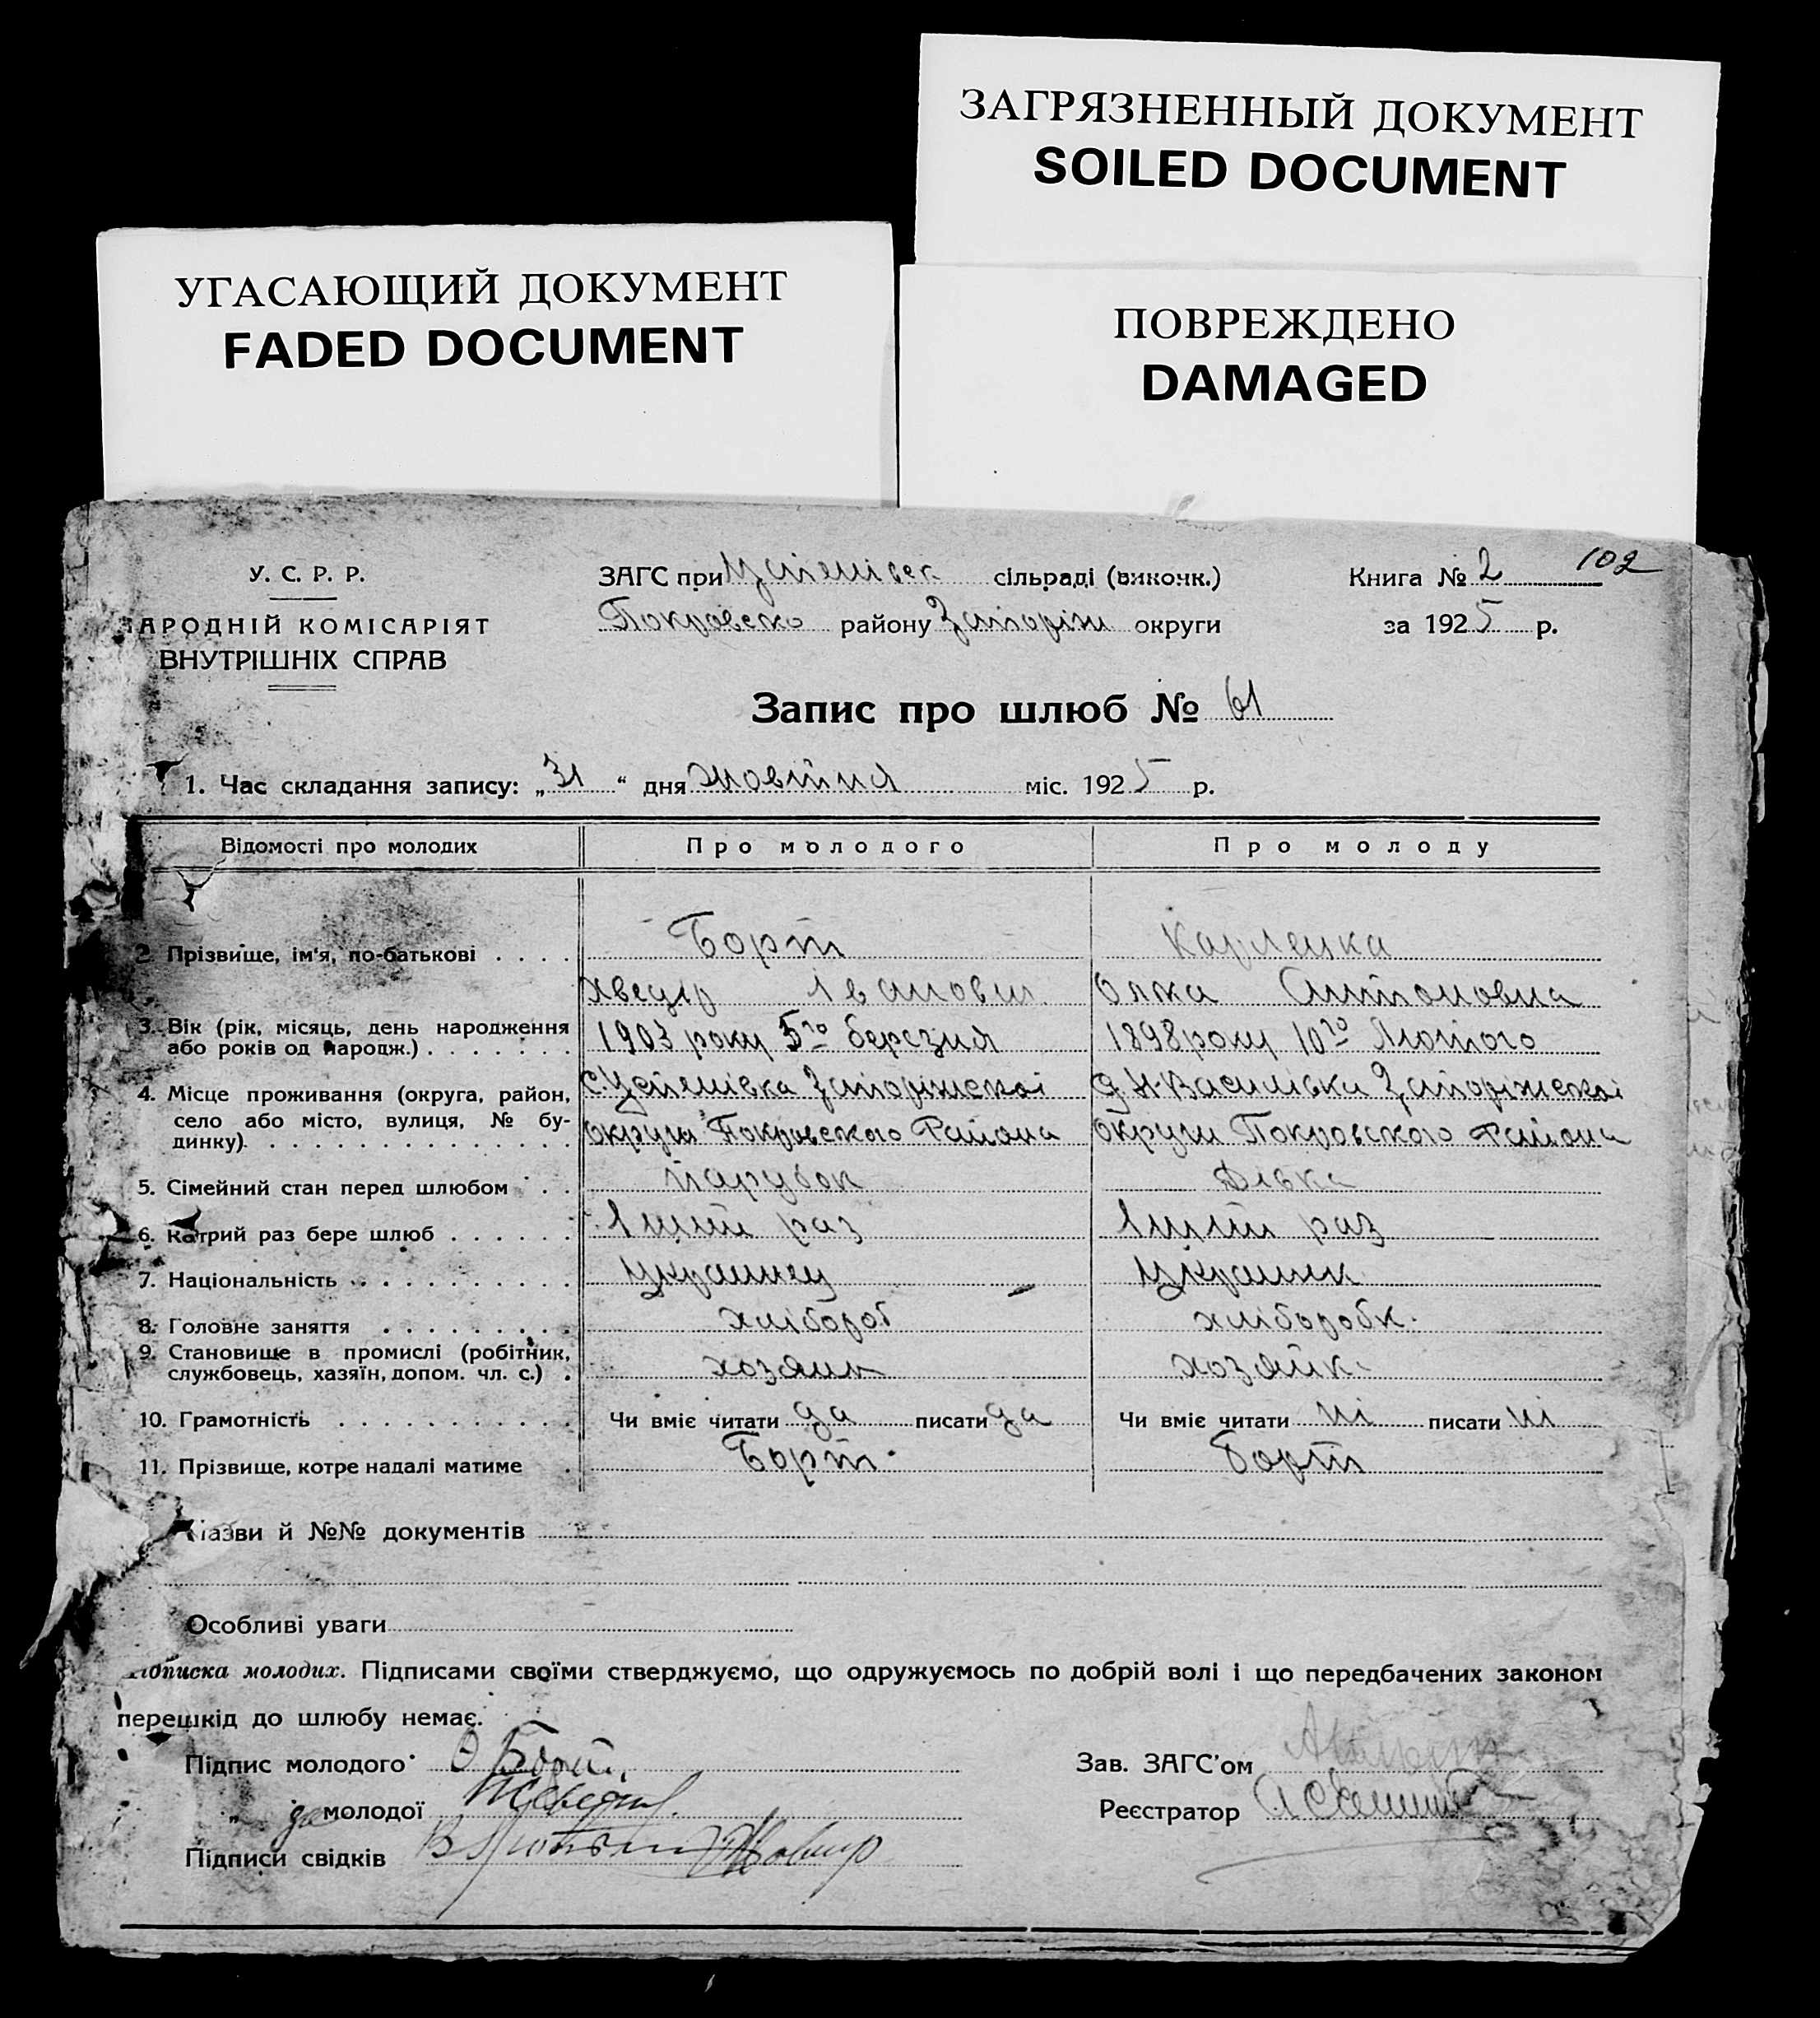 ЗАГРЯЗНЕННЫЙ ДОКУМЕНТ
SOILED DOCUMENT
УГАСАЮЩИЙ ДОКУМЕНТ
FADED DOCUMENT
ПОВРЕЖДЕНО
DAMAGED
102
У. С. Р. Р.
АРОДНІЙ КОМІСАРІЯТ
ВНУТРІШНІХ СПРАВ
ЗАГС при Успенівск сільраді (виконк.)
Покровско району Запоріж округи
Книга № 2
за 1925 р.
Запис про шлюб № 61
1. Час складання запису: „31“ дня жовтня міс. 1925 р.
Відомості про молодих Про молодого Про молоду
2. Прізвище, ім'я, по-батькові . . . . Борт Карленка
Хведір Іванович Олжа Антоновна
3. Вік (рік, місяць, день народження або років од народж.) . . . . . . . 1903 року 5го березня 1898 року 10го Лютого
4. Місце проживання (округа, район, с. Успенівка Запоріжскої д. Н-Василівка Запоріжскої
село або місто, вулиця, № бу-
динку). . . . . . . . . . . . . . . округи Покровского Района Округи Покровского Района
5. Сімейний стан перед шлюбом . . . Парубок Дівка
6. Котрий раз бере шлюб . . . . . . 1ший раз 1ший раз
7. Національність . . . . . . . . . . . Українец Українк
8. Головне заняття . . . . . . . . . хлібороб хліборобк.
9. Становище в промислі (робітник,
службовець, хазяїн, допом. чл. с.) . хозяин хозяйк
10. Грамотність . . . . . . . . . . . Чи вміє читати да писати да Чи вміє читати ні писати ні
11. Прізвище, котре надалі матиме . Борт. Борт
азви й №№ документів
Особливі уваги
ідписка молодих. Підписами своїми стверджуємо, що одружуємось по добрій волі і що передбачених законом
перешкід до шлюбу немає.
Підпис молодого Ѳ Борт
Зав. ЗАГС'ом
„ за молодої
Реєстратор
Підписи свідків